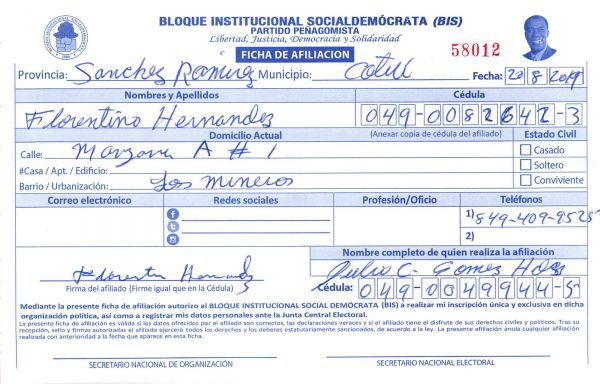 BLOQUE INSTITUCIONAL SOCIALDEMÓCRATA (BIS)
PARTIDO PEÑAGOMISTA
Libertad, Justicia, Democracia y Solidaridad
FICHA DE AFILIACION
58012
Provincia: Sanchez Ramirez Municipio: Cotui Fecha: 20/8/2019
Nombres y Apellidos Cédula
Florentino Hernandez 049-0082642-3
Domicilio Actual (Anexar copia de cédula del afiliado) Estado Civil
Calle: Manzana A # 1 Casado
#Casa / Apt. / Edificio: Soltero
Barrio / Urbanización: Los Mineros Conviviente
Correo electrónico Redes sociales Profesión/Oficio Teléfonos
1) 849-409-9525
2)
Nombre completo de quien realiza la afiliación
Florentin Hernandez Julio C. Gomez
Firma del afiliado (Firme igual que en la Cédula) Cédula: 049-0049944-5
Mediante la presente ficha de afiliación autorizo al BLOQUE INSTITUCIONAL SOCIAL DEMÓCRATA (BIS) a realizar mi inscripción única y exclusiva en dicha
organización política, así como a registrar mis datos personales ante la Junta Central Electoral.
La presente ficha de afiliación es válida si los datos ofrecidos por el afiliado son correctos, las declaraciones veraces y si el afiliado tiene el disfrute de sus derechos civiles y políticos. Tras su
recepción, sello y firmas autorizadas el afiliado ejercerá todos los derechos y los deberes estatutariamente sancionados, de acuerdo a la ley. La presente afiliación anula cualquier afiliación
realizada con anterioridad a la fecha que aparece en esta ficha.
SECRETARIO NACIONAL DE ORGANIZACIÓN SECRETARIO NACIONAL ELECTORAL